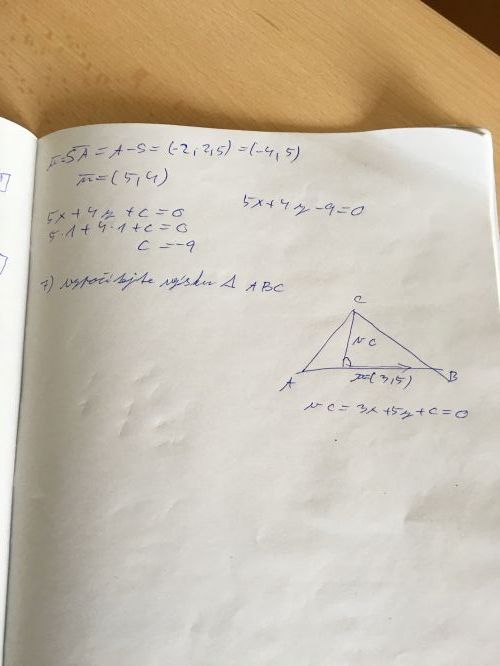 u = SA = A - S = (-2, 2,5) = (-4, 5)
n = (5, 4)
5x + 4y + c = 0
5x + 4y - 9 = 0
5·1 + 4·1 + c = 0
c = -9
7) vypočítejte výšku Δ ABC
C
vc
A
B
n=(3,5)
vc = 3x + 5y + c = 0